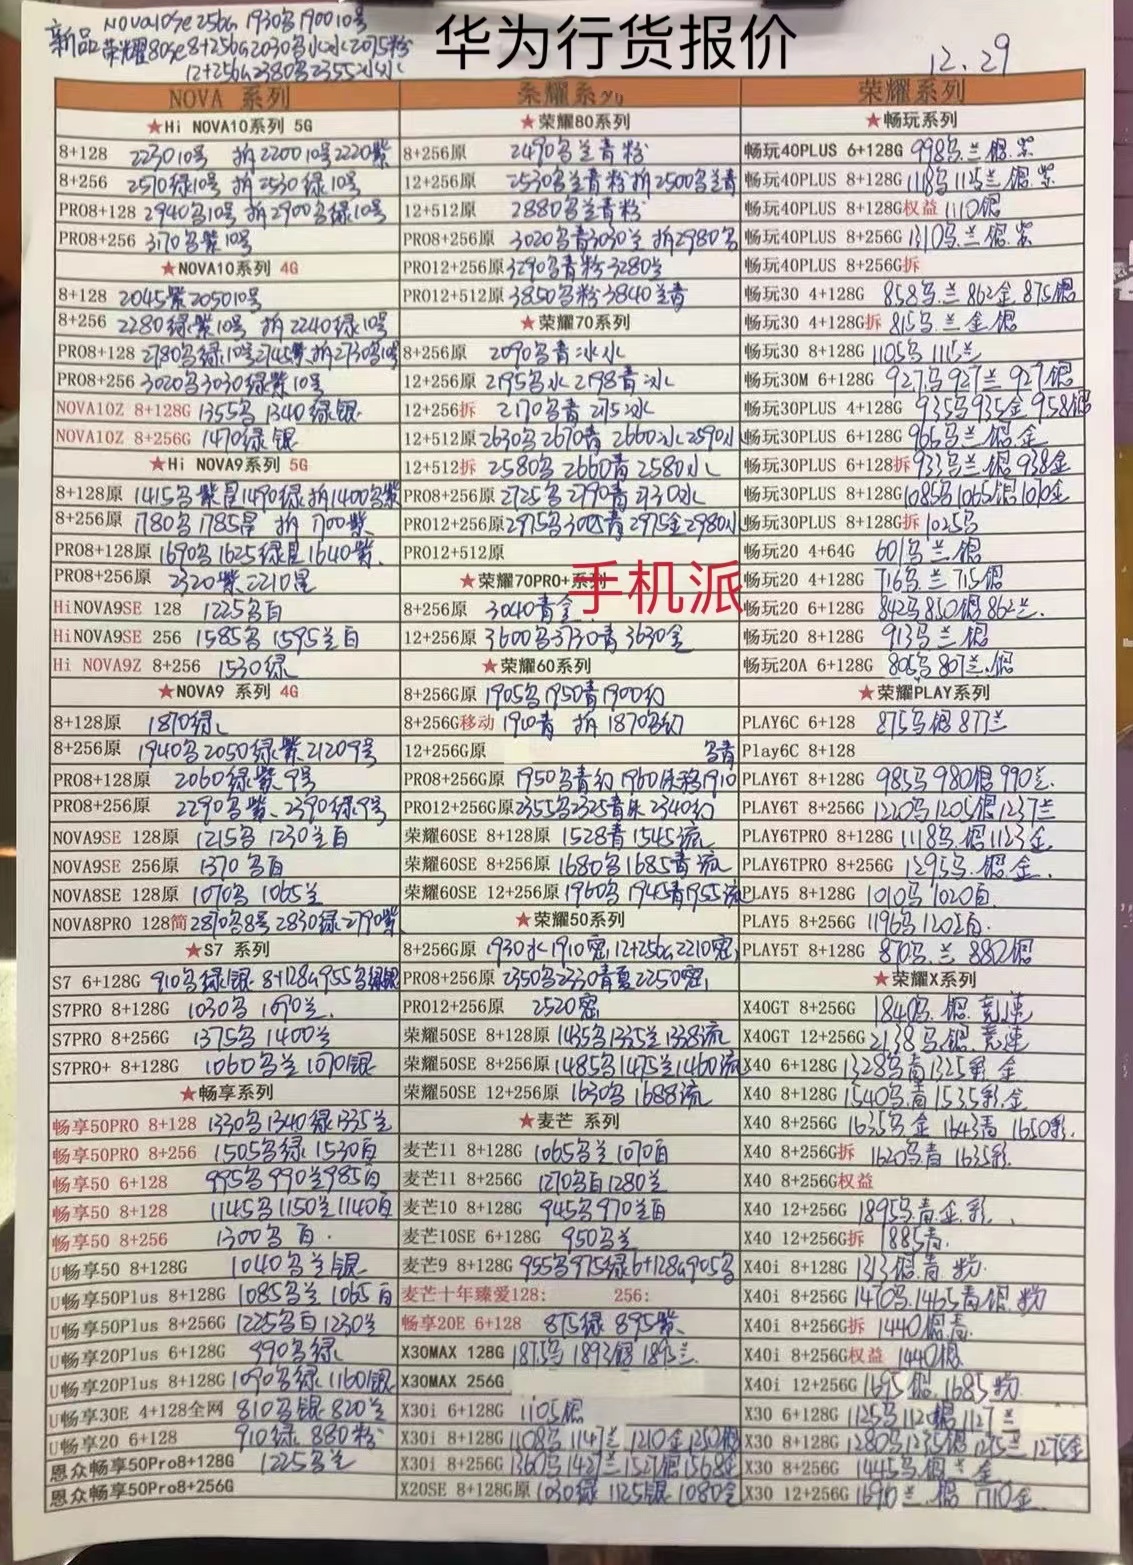 新品 NOVA10Se 256G 1930乌1900 10号
荣耀80se 8+256G 2030乌水冰2075粉
12+256G 2380乌2355冰水
华为行货报价
12.29
NOVA 系列
★Hi NOVA10系列 5G
8+128 2230 10号 拆2200 10号2220紫
8+256 2570绿10号 拆2530绿10号
PRO8+128 2940乌10号 拆2900乌绿10号
PRO8+256 3170乌紫10号
★NOVA10系列 4G
8+128 2045紫2050 10号
8+256 2280绿紫10号 拆2240绿10号
PRO8+128 2780乌绿10号2745紫拆2730乌10号
PRO8+256 3020乌3030绿紫10号
NOVA10Z 8+128G 1355乌 1340绿银
NOVA10Z 8+256G 1470绿银
★Hi NOVA9系列 5G
8+128原 1415乌紫星1490绿拆1400乌紫
8+256原 1780乌1785星 拆1700紫
PRO8+128原 1690乌1625绿星1640紫
PRO8+256原 2320紫2210星
HiNOVA9SE 128 1225乌白
HiNOVA9SE 256 1585乌 1595兰白
Hi NOVA9Z 8+256 1530绿
★NOVA9 系列 4G
8+128原 1870绿
8+256原 1940乌2050绿紫2120 9号
PRO8+128原 2060绿紫9号
PRO8+256原 2290乌紫、2390绿9号
NOVA9SE 128原 1215乌 1230兰白
NOVA9SE 256原 1370乌白
NOVA8SE 128原 1070乌 1065兰
NOVA8PRO 128简 2890乌8号2830绿2790紫
★S7 系列
S7 6+128G 910乌绿银 8+128G955乌绿银
S7PRO 8+128G 1030乌 1070兰
S7PRO 8+256G 1375乌 1400兰
S7PRO+ 8+128G 1060乌兰1070银
★畅享系列
畅享50PRO 8+128 1330乌1340绿1335兰
畅享50PRO 8+256 1505乌绿 1530白
畅享50 6+128 995乌990兰985白
畅享50 8+128 1145乌1150兰1140白
畅享50 8+256 1300乌白
U畅享50 8+128G 1040乌兰银
U畅享50Plus 8+128G 1085乌兰 1065白
U畅享50Plus 8+256G 1225乌白1230兰
U畅享20Plus 6+128G 990乌绿
U畅享20Plus 8+128G 1090乌绿1160银
U畅享30E 4+128全网 810乌银 820兰
U畅享20 6+128 910绿 880粉
恩众畅享50Pro8+128G 1225乌兰
恩众畅享50Pro8+256G
荣耀系列
★荣耀80系列
8+256原 2490乌兰青粉
12+256原 2530乌兰青粉拆2500乌兰青
12+512原 2880乌兰青粉
PRO8+256原 3020乌青3030兰 拆2980乌
PRO12+256原 3290乌青粉3280兰
PRO12+512原 3850乌粉3840兰青
★荣耀70系列
8+256原 2090乌青冰水
12+256原 2195乌水2198青冰
12+256拆 2170乌青 2175冰
12+512原 2630乌2670青 2660水2890冰
12+512拆 2580乌 2660青 2580水
PRO8+256原 2725乌2790青2730水
PRO12+256原 2975乌3005青2975金2980冰
PRO12+512原
★荣耀70PRO+系列
手机派
8+256原 3040青金
12+256原 3600乌3730青3630金
★荣耀60系列
8+256G原 1905乌1950青1900幻
8+256G移动 1910青 拆1870乌幻
12+256G原 乌青
PRO8+256G原 1950乌青幻1960朱移1910
PRO12+256G原 2355乌2325青朱2340幻
荣耀60SE 8+128原 1528青1545流
荣耀60SE 8+256原 1680乌1685青流
荣耀60SE 12+256原 1960乌1945青1955流
★荣耀50系列
8+256G原 1930水1910密12+256G2210密
PRO8+256原 2350乌2230青夏2250密
PRO12+256原 2520密
荣耀50SE 8+128原 1435乌1335兰1338流
荣耀50SE 8+256原 1485乌1475兰1460流
荣耀50SE 12+256原 1630乌1688流
★麦芒 系列
麦芒11 8+128G 1065乌兰1070白
麦芒11 8+256G 1270乌白1280兰
麦芒10 8+128G 945乌970兰白
麦芒10SE 6+128G 950乌兰
麦芒9 8+128G 955乌975绿6+128G905乌
麦芒十年臻爱128: 256:
畅享20E 6+128 875绿 895紫
X30MAX 128G 1875乌1893银1895兰
X30MAX 256G
X30i 6+128G 1105银
X30i 8+128G 1108乌1147兰1210金1250银
X30i 8+256G 1360乌1427兰1527银1568金
X20SE 8+128G原 1030绿 1125银1080金
荣耀系列
★畅玩系列
畅玩40PLUS 6+128G 998乌.兰.银.紫
畅玩40PLUS 8+128G 1118乌1115兰银.紫
畅玩40PLUS 8+128G权益 1110银
畅玩40PLUS 8+256G 1310乌.兰.银.紫
畅玩40PLUS 8+256G拆
畅玩30 4+128G 858乌.兰862金875银
畅玩30 4+128G拆 815乌.兰金银
畅玩30 8+128G 1105乌1115兰
畅玩30M 6+128G 927乌927兰927银
畅玩30PLUS 4+128G 935乌935金958银
畅玩30PLUS 6+128G 965乌兰银金
畅玩30PLUS 6+128拆 933乌兰银938金
畅玩30PLUS 8+128G 1085乌1065银1070金
畅玩30PLUS 8+128G拆 1025乌
畅玩20 4+64G 601乌兰银
畅玩20 4+128G 716乌.兰715银
畅玩20 6+128G 842乌850银862兰.
畅玩20 8+128G 913乌兰银
畅玩20A 6+128G 805乌807兰.银
★荣耀PLAY系列
PLAY6C 6+128 875乌银877兰
Play6C 8+128
PLAY6T 8+128G 985乌980银990兰.
PLAY6T 8+256G 1220乌1205银1237兰
PLAY6TPRO 8+128G 1118乌.银1123金
PLAY6TPRO 8+256G 1295乌.银.金.
PLAY5 8+128G 1010乌1020白
PLAY5 8+256G 1196乌1202白.
PLAY5T 8+128G 870乌.兰 880银
★荣耀X系列
X40GT 8+256G 1840乌.银.竞速
X40GT 12+256G 2138乌.银.竞速
X40 6+128G 1328乌青1325彩.金
X40 8+128G 1540乌.青1535彩.金
X40 8+256G 1635乌金1643青1650彩.
X40 8+256G拆 1620乌青1635彩
X40 8+256G权益
X40 12+256G 1895乌青.金.彩
X40 12+256G拆 1885青.
X40i 8+128G 1313银.青.粉.
X40i 8+256G 1470乌.1465青银.粉
X40i 8+256G拆 1440银青
X40i 8+256G权益 1440银
X40i 12+256G 1695银.1685粉
X30 6+128G 1125乌1120银1127兰
X30 8+128G 1280乌1235银1275兰1275金
X30 8+256G 1445乌银兰金
X30 12+256G 1690兰.银1710金